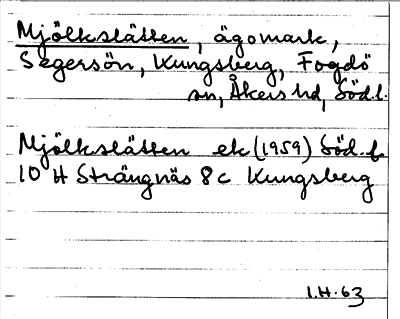 Mjölkslätten, ägomark,
Segersön, Kungsberg, Fogdö
sn, Åkers hd, Söd.l.
Mjölkslätten ek (1959) Söd. l.
10 H Strängnäs 8 c Kungsberg
I.H. 63